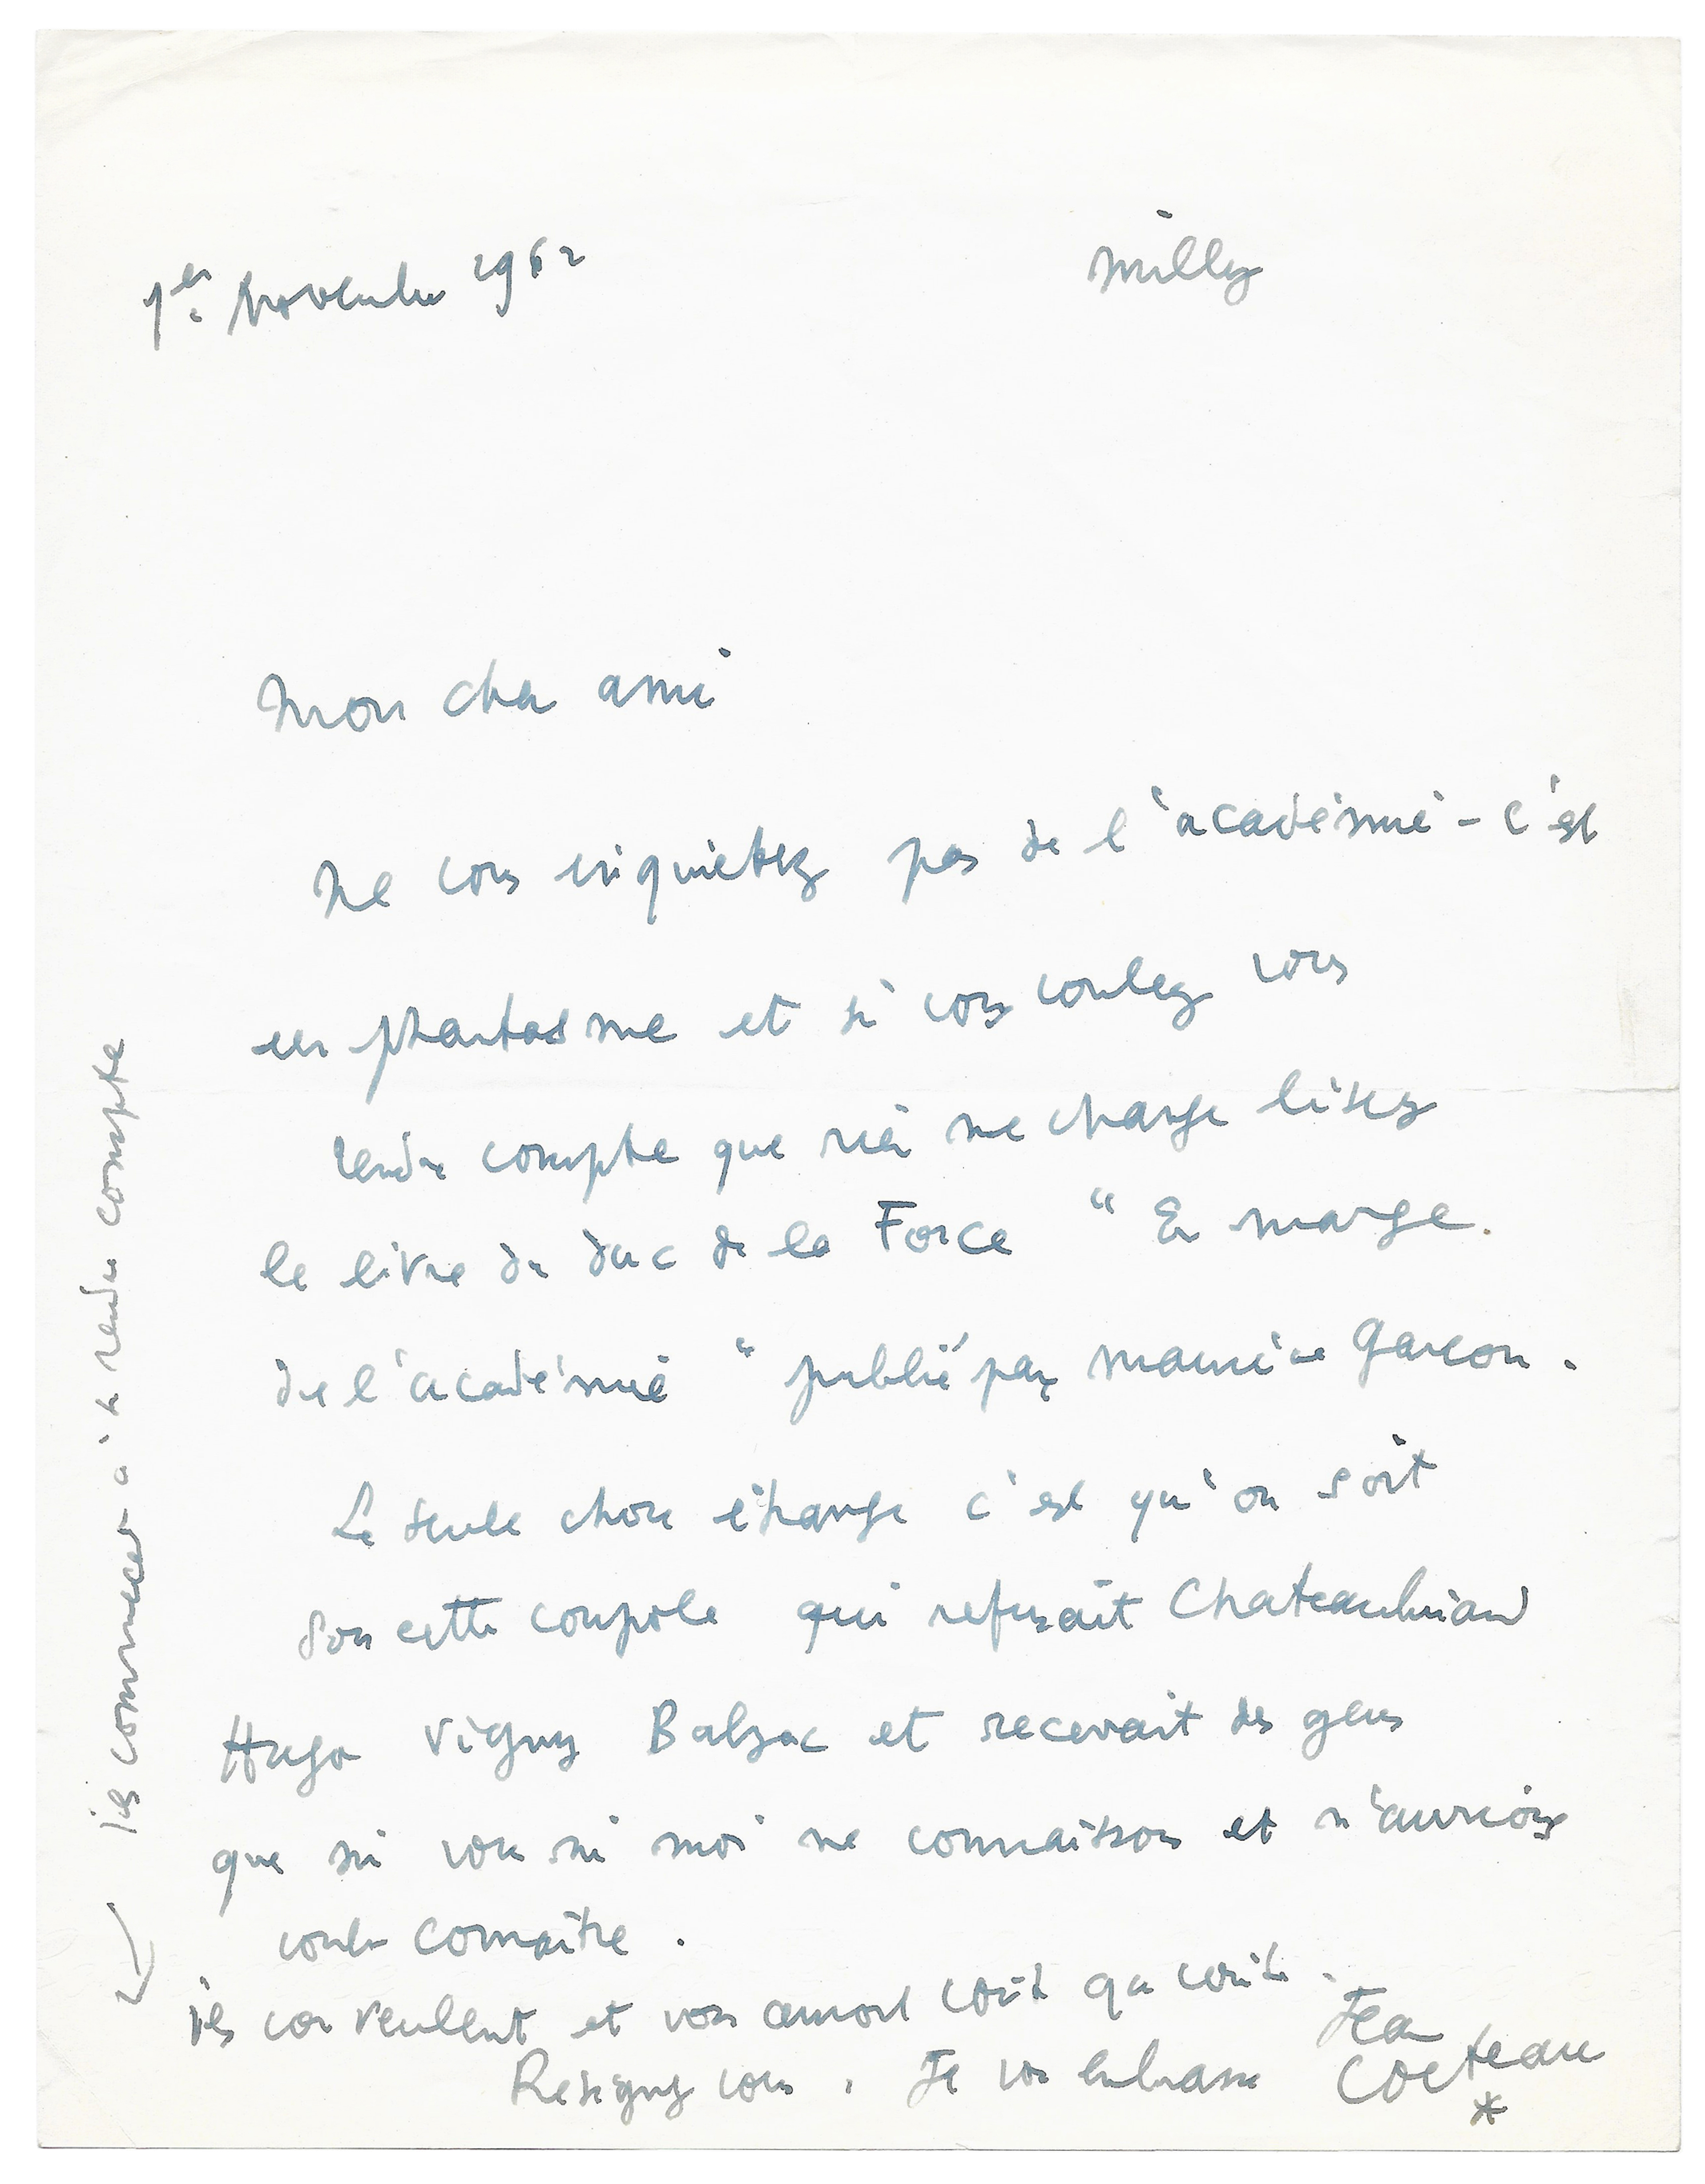 1er Novembre 1962
Milly
Mon cher ami
Ne vous inquietez pas de l'académie - c'est
un phantasme et si vous voulez vous
rendre compte que rien ne change lisez
le livre du duc de la Force "En marge
de l'académie" publié par Maurice Garçon.
La seule chose étrange c'est qu'on soit
sous cette coupole qui refusait Chateaubriand
Hugo Vigny Balzac et recevait des gens
que ni vous ni moi ne connaissons et n'aurions
voulu connaître.
ils commencent à se rendre compte
ils vous veulent et vous auront coûte que coûte.
Resignez vous. Je vous embrasse
Jean
Cocteau
*